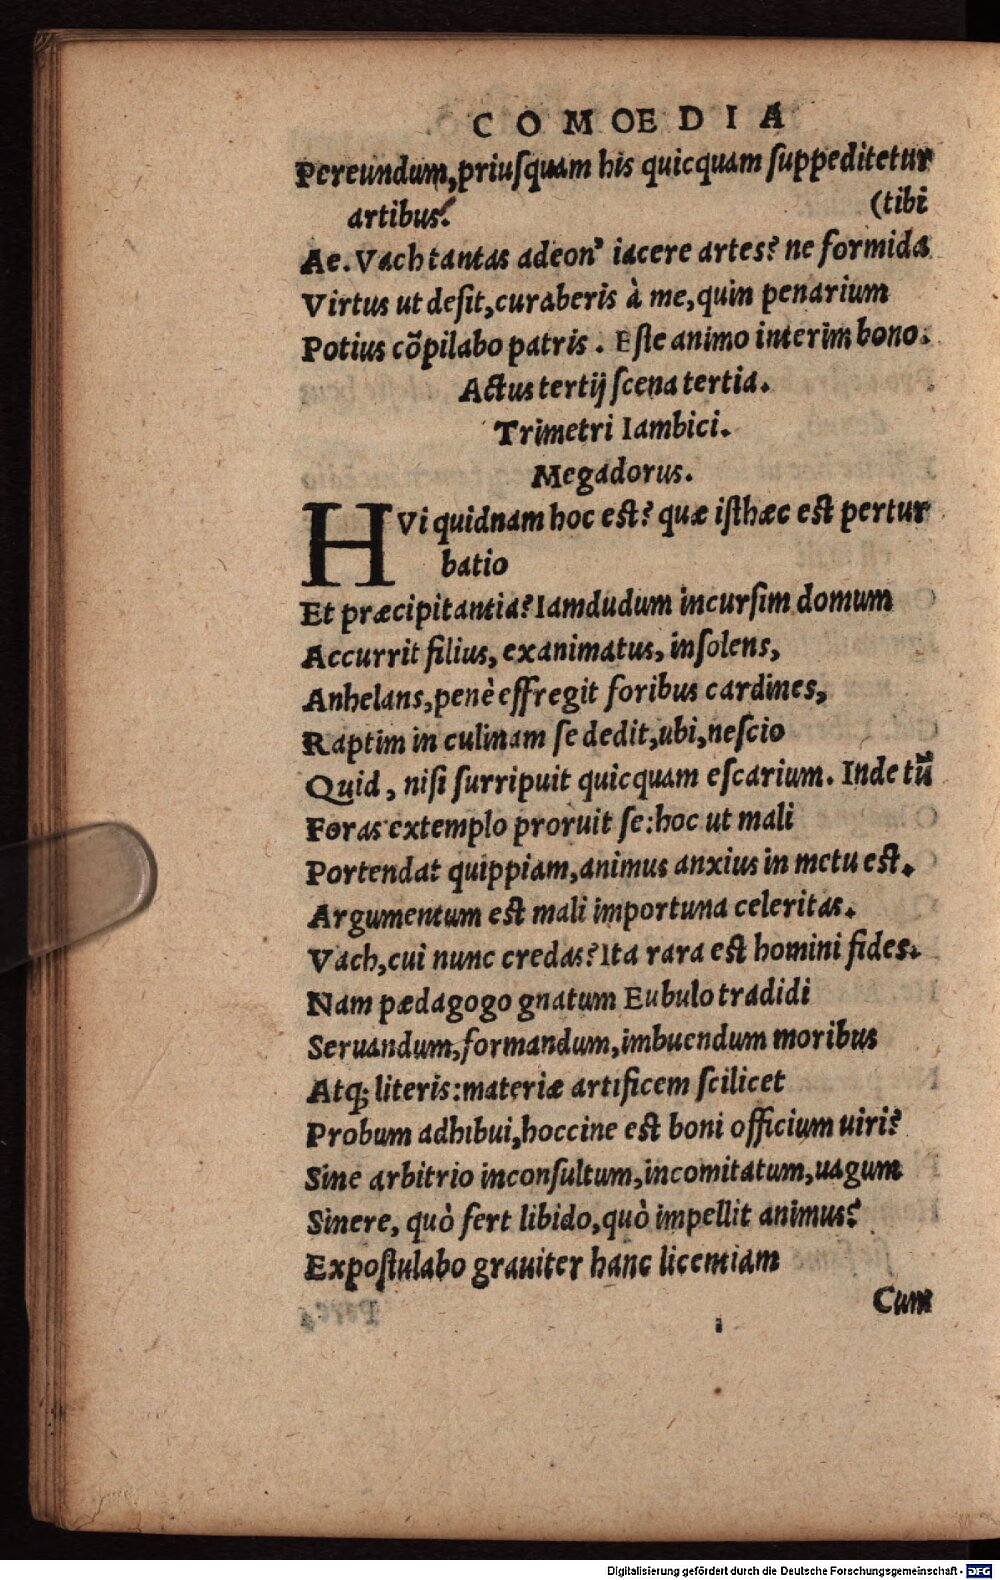 COMOEDIA
Pereundum, priusquam his quicquam suppeditetur
artibus? (tibi
Ae. Vach tantas adeon' iacere artes? ne formida
Virtus ut desit, curaberis à me, quin penarium
Potius cõpilabo patris. Este animo interim bono.
Actus tertij scena tertia.
Trimetri Iambici.
Megadorus.
HVi quidnam hoc est? quæ isthæc est pertur
batio
Et præcipitantia? Iamdudum incursim domum
Accurrit filius, exanimatus, insolens,
Anhelans, penè effregit foribus cardines,
Raptim in culinam se dedit, ubi, nescio
Quid, nisi surripuit quicquam escarium. Inde tũ
Foras extemplo proruit se: hoc ut mali
Portendat quippiam, animus anxius in metu est.
Argumentum est mali importuna celeritas.
Vach, cui nunc credas? Ita rara est homini fides.
Nam pædagogo gnatum Eubulo tradidi
Seruandum, formandum, imbuendum moribus
Atq; literis: materiæ artificem scilicet
Probum adhibui, hoccine est boni officium uiri?
Sine arbitrio inconsultum, incomitatum, uagum
Sinere, quò fert libido, quò impellit animus?
Expostulabo grauiter hanc licentiam
Cum
Digitalisierung gefördert durch die Deutsche Forschungsgemeinschaft - DFG